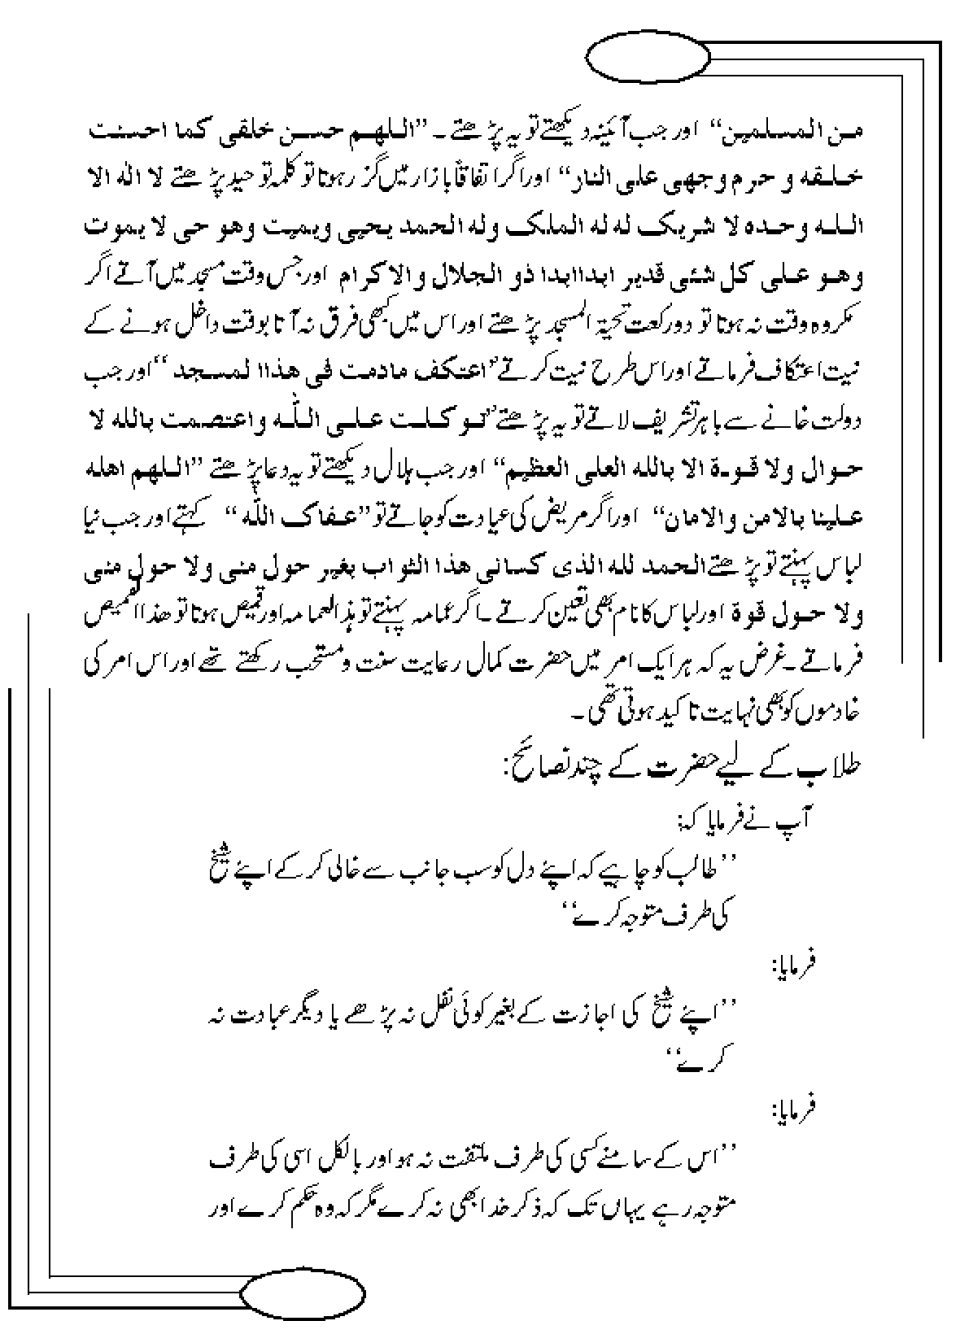 مـن الـمـسـلـمیـن‘‘ اور جب آئینہ دیکھتے تو یہ پڑھتے ۔ ’’الـلـهـم حسـن خلقی کما احسنت
خـلـقه و حرم وجهی علی النار‘‘ اور اگر اتفاقاً بازار میں گزر ہوتا تو کلمہ توحید پڑھتے لا الٰه الا
الـلـه وحـده لا شریک له له الملک وله الحمد یحیی ویمیت وهو حی لا یموت
وهـو عـلـی کل شئی قدیر ابداابدا ذو الجلال والاکرام اور جس وقت مسجد میں آتے اگر
مکروہ وقت نہ ہوتا تو دو رکعت تحیۃ المسجد پڑھتے اور اس میں کبھی فرق نہ آتا بوقت داخل ہونے کے
نیت اعتکاف فرماتے اور اس طرح نیت کرتے ’’اعتکف مادمت فی هذاا لمسجد ‘‘اور جب
دولت خانے سے باہر تشریف لاتے تو یہ پڑھتے ’’تـو کـلـت عـلـی الـلّٰـه واعتصمت بالله لا
حـوال ولا قـوـة الا بالله العلی العظیم‘‘ اور جب ہلال دیکھتے تو یہ دعا پڑھتے ’’الـلهم اهله
عـلینا بالامن والامان‘‘ اور اگر مریض کی عیادت کو جاتے تو ’’عـفاک اللّٰه ‘‘ کہتے اور جب نیا
لباس پہنتے تو پڑھتے الحمد لله الذی کسانی هذا الثواب بغیر حول منی ولا حول منی
ولا حـول قوة اور لباس کا نام بھی تعین کرتے ۔ اگر عمامہ پہنتے تو ہذ العمامہ اور قمیص ہوتا تو هذاالقمیص
فرماتے ۔ غرض یہ کہ ہر ایک امر میں حضرت کمال رعایت سنت و مستحب رکھتے تھے اور اس امر کی
خادموں کو بھی نہایت تاکید ہوتی تھی ۔
طلاب کے لیے حضرت کے چند نصائح:
آپ نے فرمایا کہ:
’’طالب کو چاہیے کہ اپنے دل کو سب جانب سے خالی کر کے اپنے شیخ
کی طرف متوجہ کرے‘‘
فرمایا:
’’اپنے شیخ کی اجازت کے بغیر کوئی نفل نہ پڑھے یا دیگر عبادت نہ
کرے‘‘
فرمایا:
’’اس کے سامنے کسی کی طرف ملتفت نہ ہو اور بالکل اسی کی طرف
متوجہ رہے یہاں تک کہ ذکر خدا بھی نہ کرے مگر کہ وہ حکم کرے اور